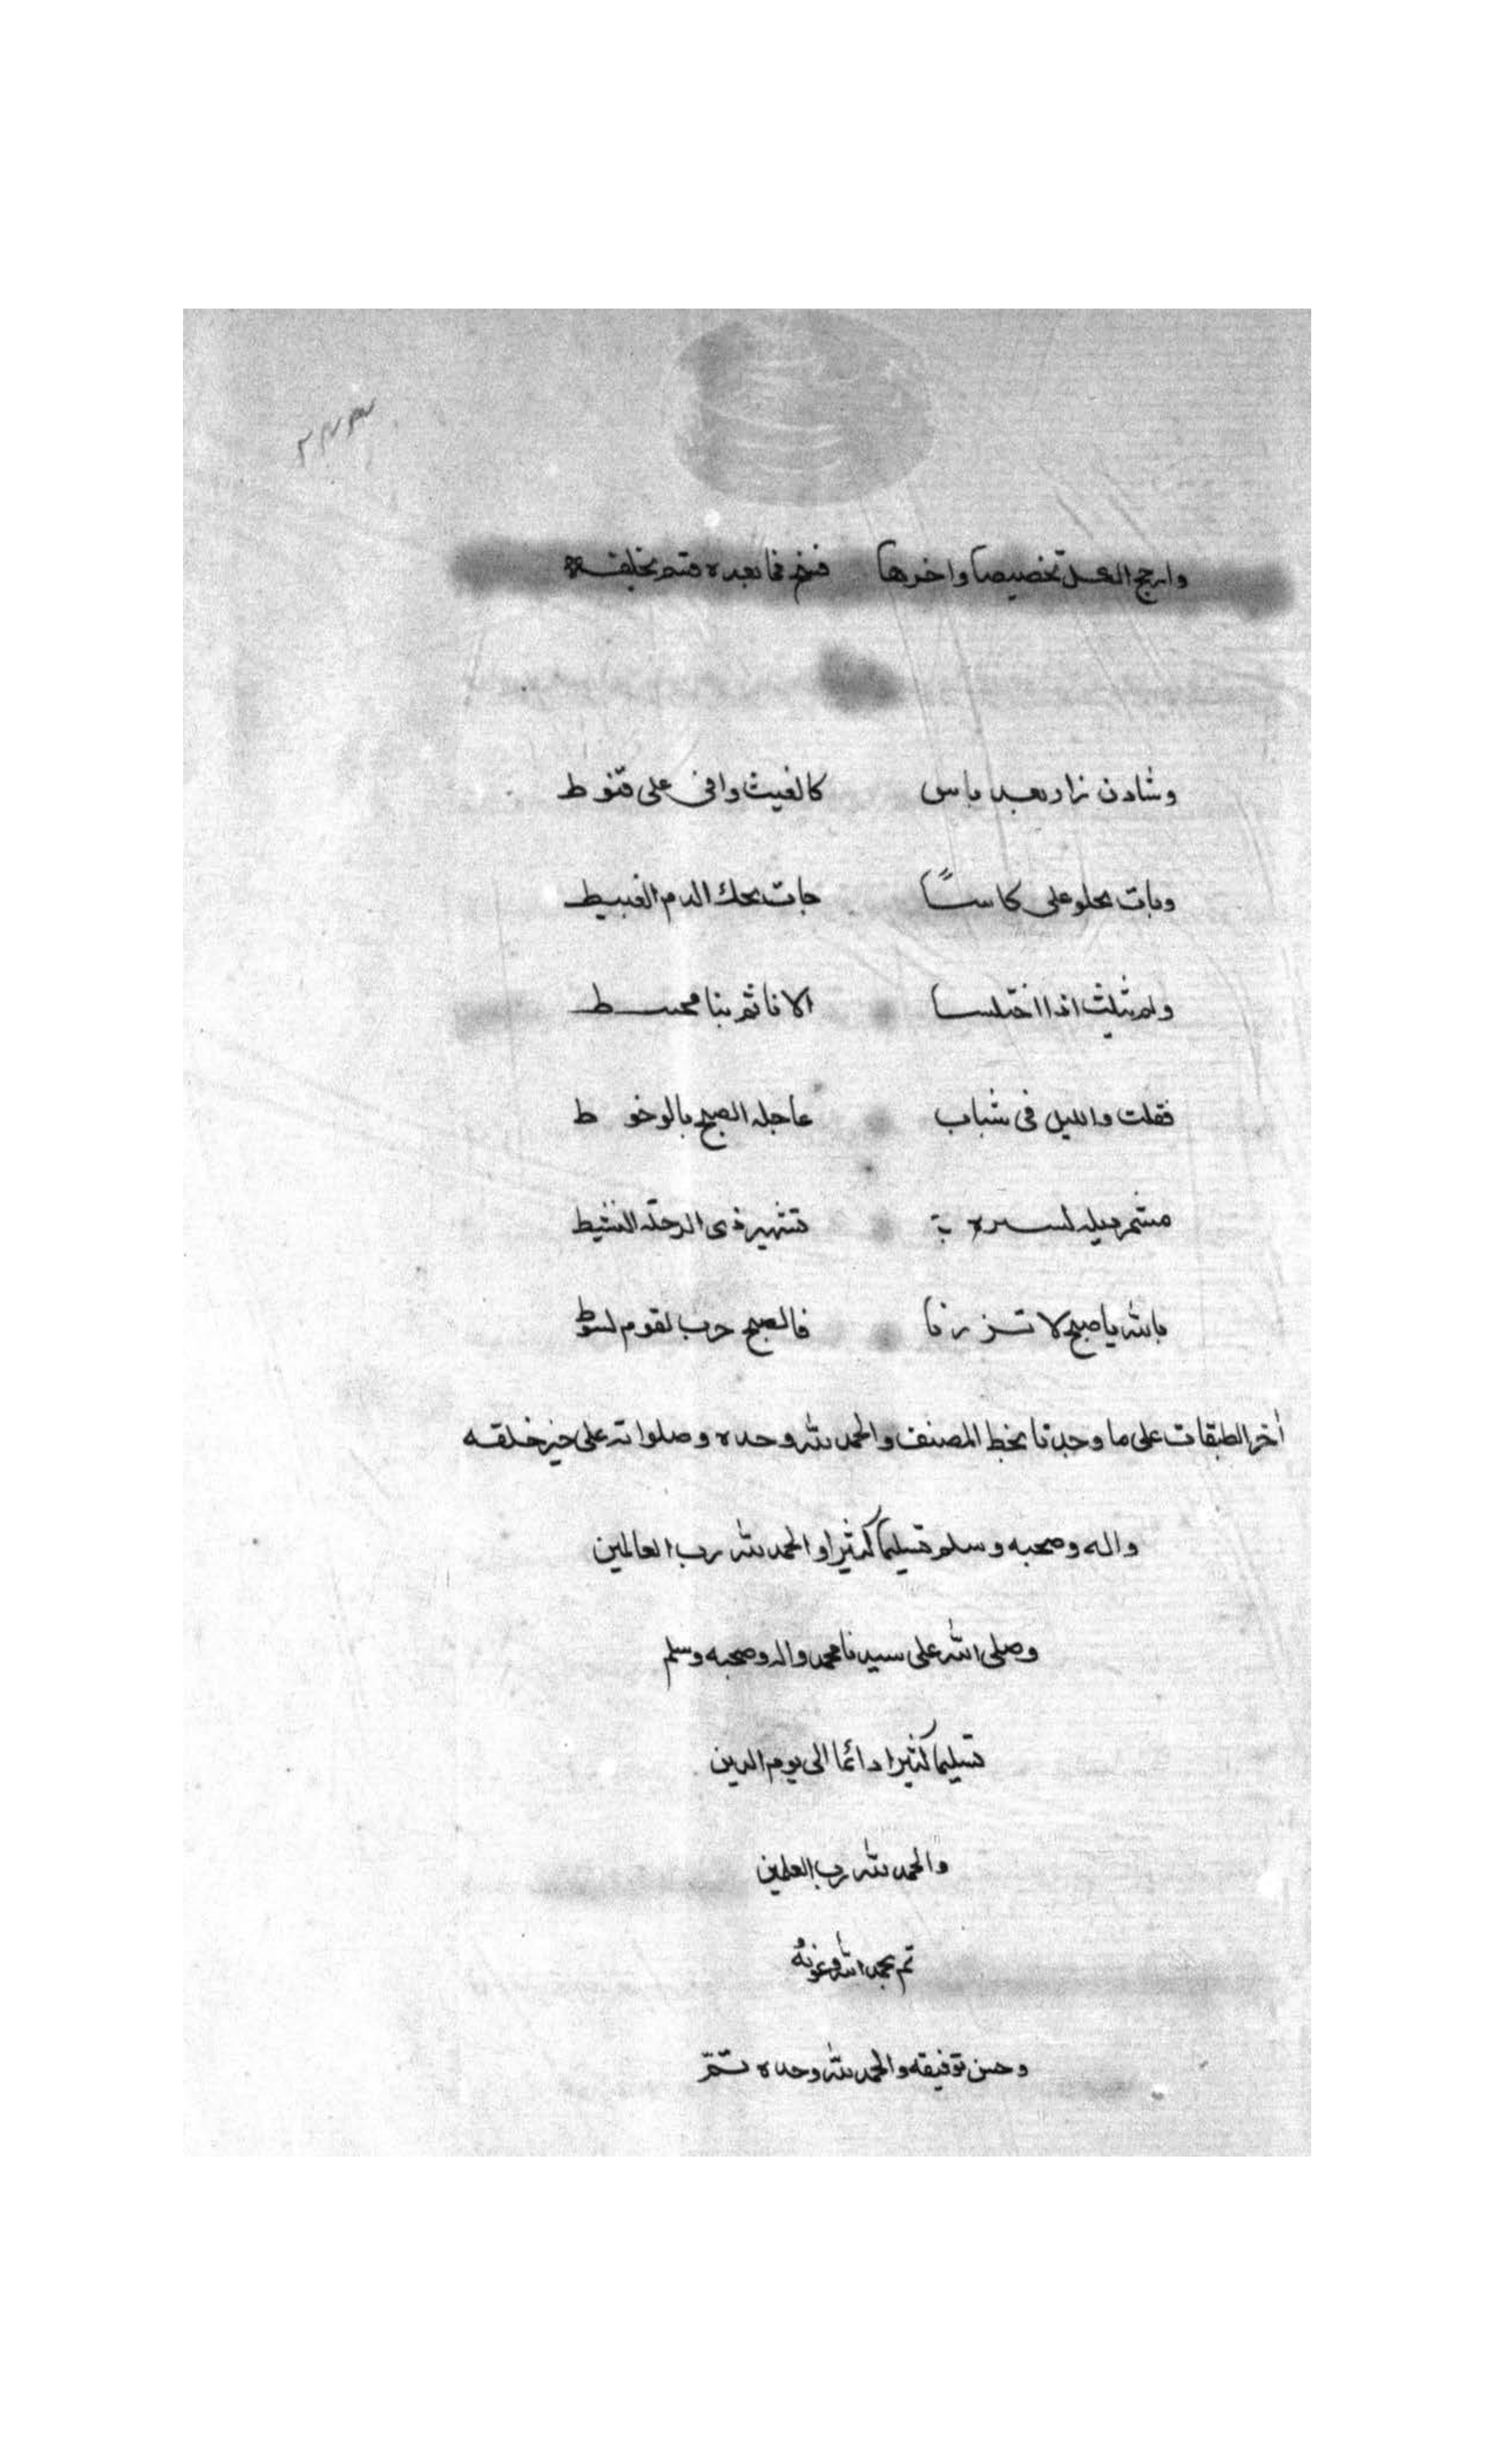 ٢٧٣
وارجح العسل تخصيصا واخرها فنخم فما بعده قتم تخليقه
وشادن زار بعد ياس كالغيث وافى على قنوط
وبات يجلو على كاسًا جات تحك الدم الغبيط
ولم ثليث اذا اختلسا الا فاثم بنا محيط
فقلت والليل فى شباب عاجله الصبح بالوخو ط
مشمر ميله لسيره تشمير ذى الرحلة النشيط
بالله يا صبح لا تزرنا فالصبح حرب لقوم لوط
أخر الطبقات على ما وجدنا بخط المصنف والحمد لله وحده وصلواته على خير خلقه
واله وصحبه وسلم تسليما كثيرا والحمد لله رب العالمين
وصلى الله على سيدنا محمد واله وصحبه وسلم
تسليما كثيرا دائما الى يوم الدين
والحمد لله رب العلمين
تم بحمد الله وعونه
وحسن توفيقه والحمد لله وحده تمّ